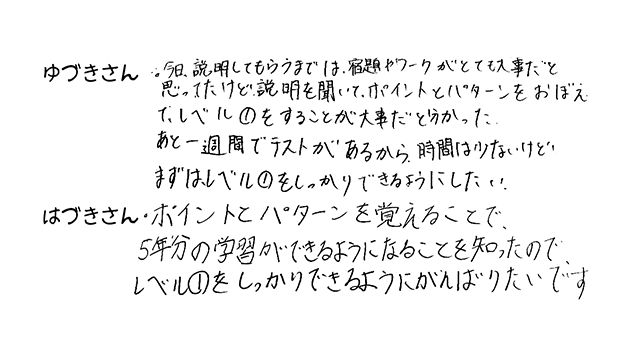 ゆづきさん ・今日、説明してもらうまでは、宿題やワークがとても大事だと
思ってたけど、説明を聞いて、ポイントとパターンをおぼえ
て、レベル①をすることが大事だと分かった。
あと一週間でテストがあるから、時間は少ないけど
まずはレベル①をしっかりできるようにしたい。
はづきさん・ポイントとパターンを覚えることで、
5年分の学習ができるようになることを知ったので、
レベル①をしっかりできるようにがんばりたいです